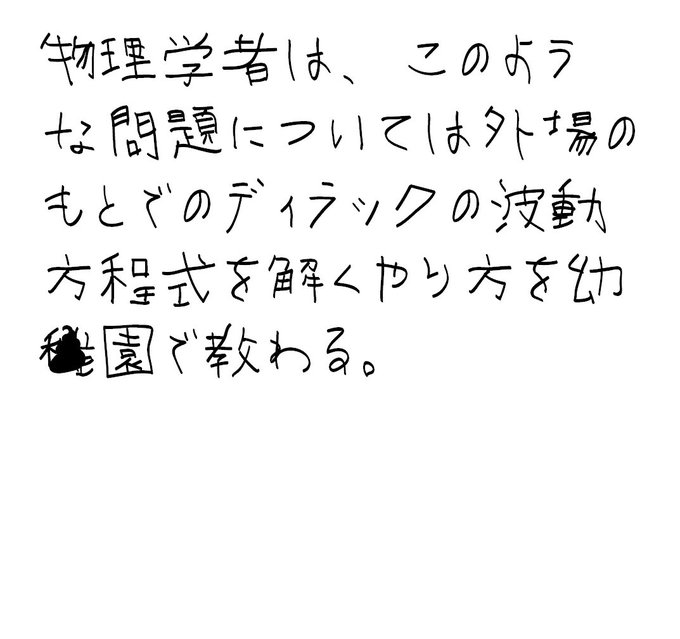 物理学者は、このよう
な問題については外場の
もとでのディラックの波動
方程式を解くやり方を幼
園で教わる。